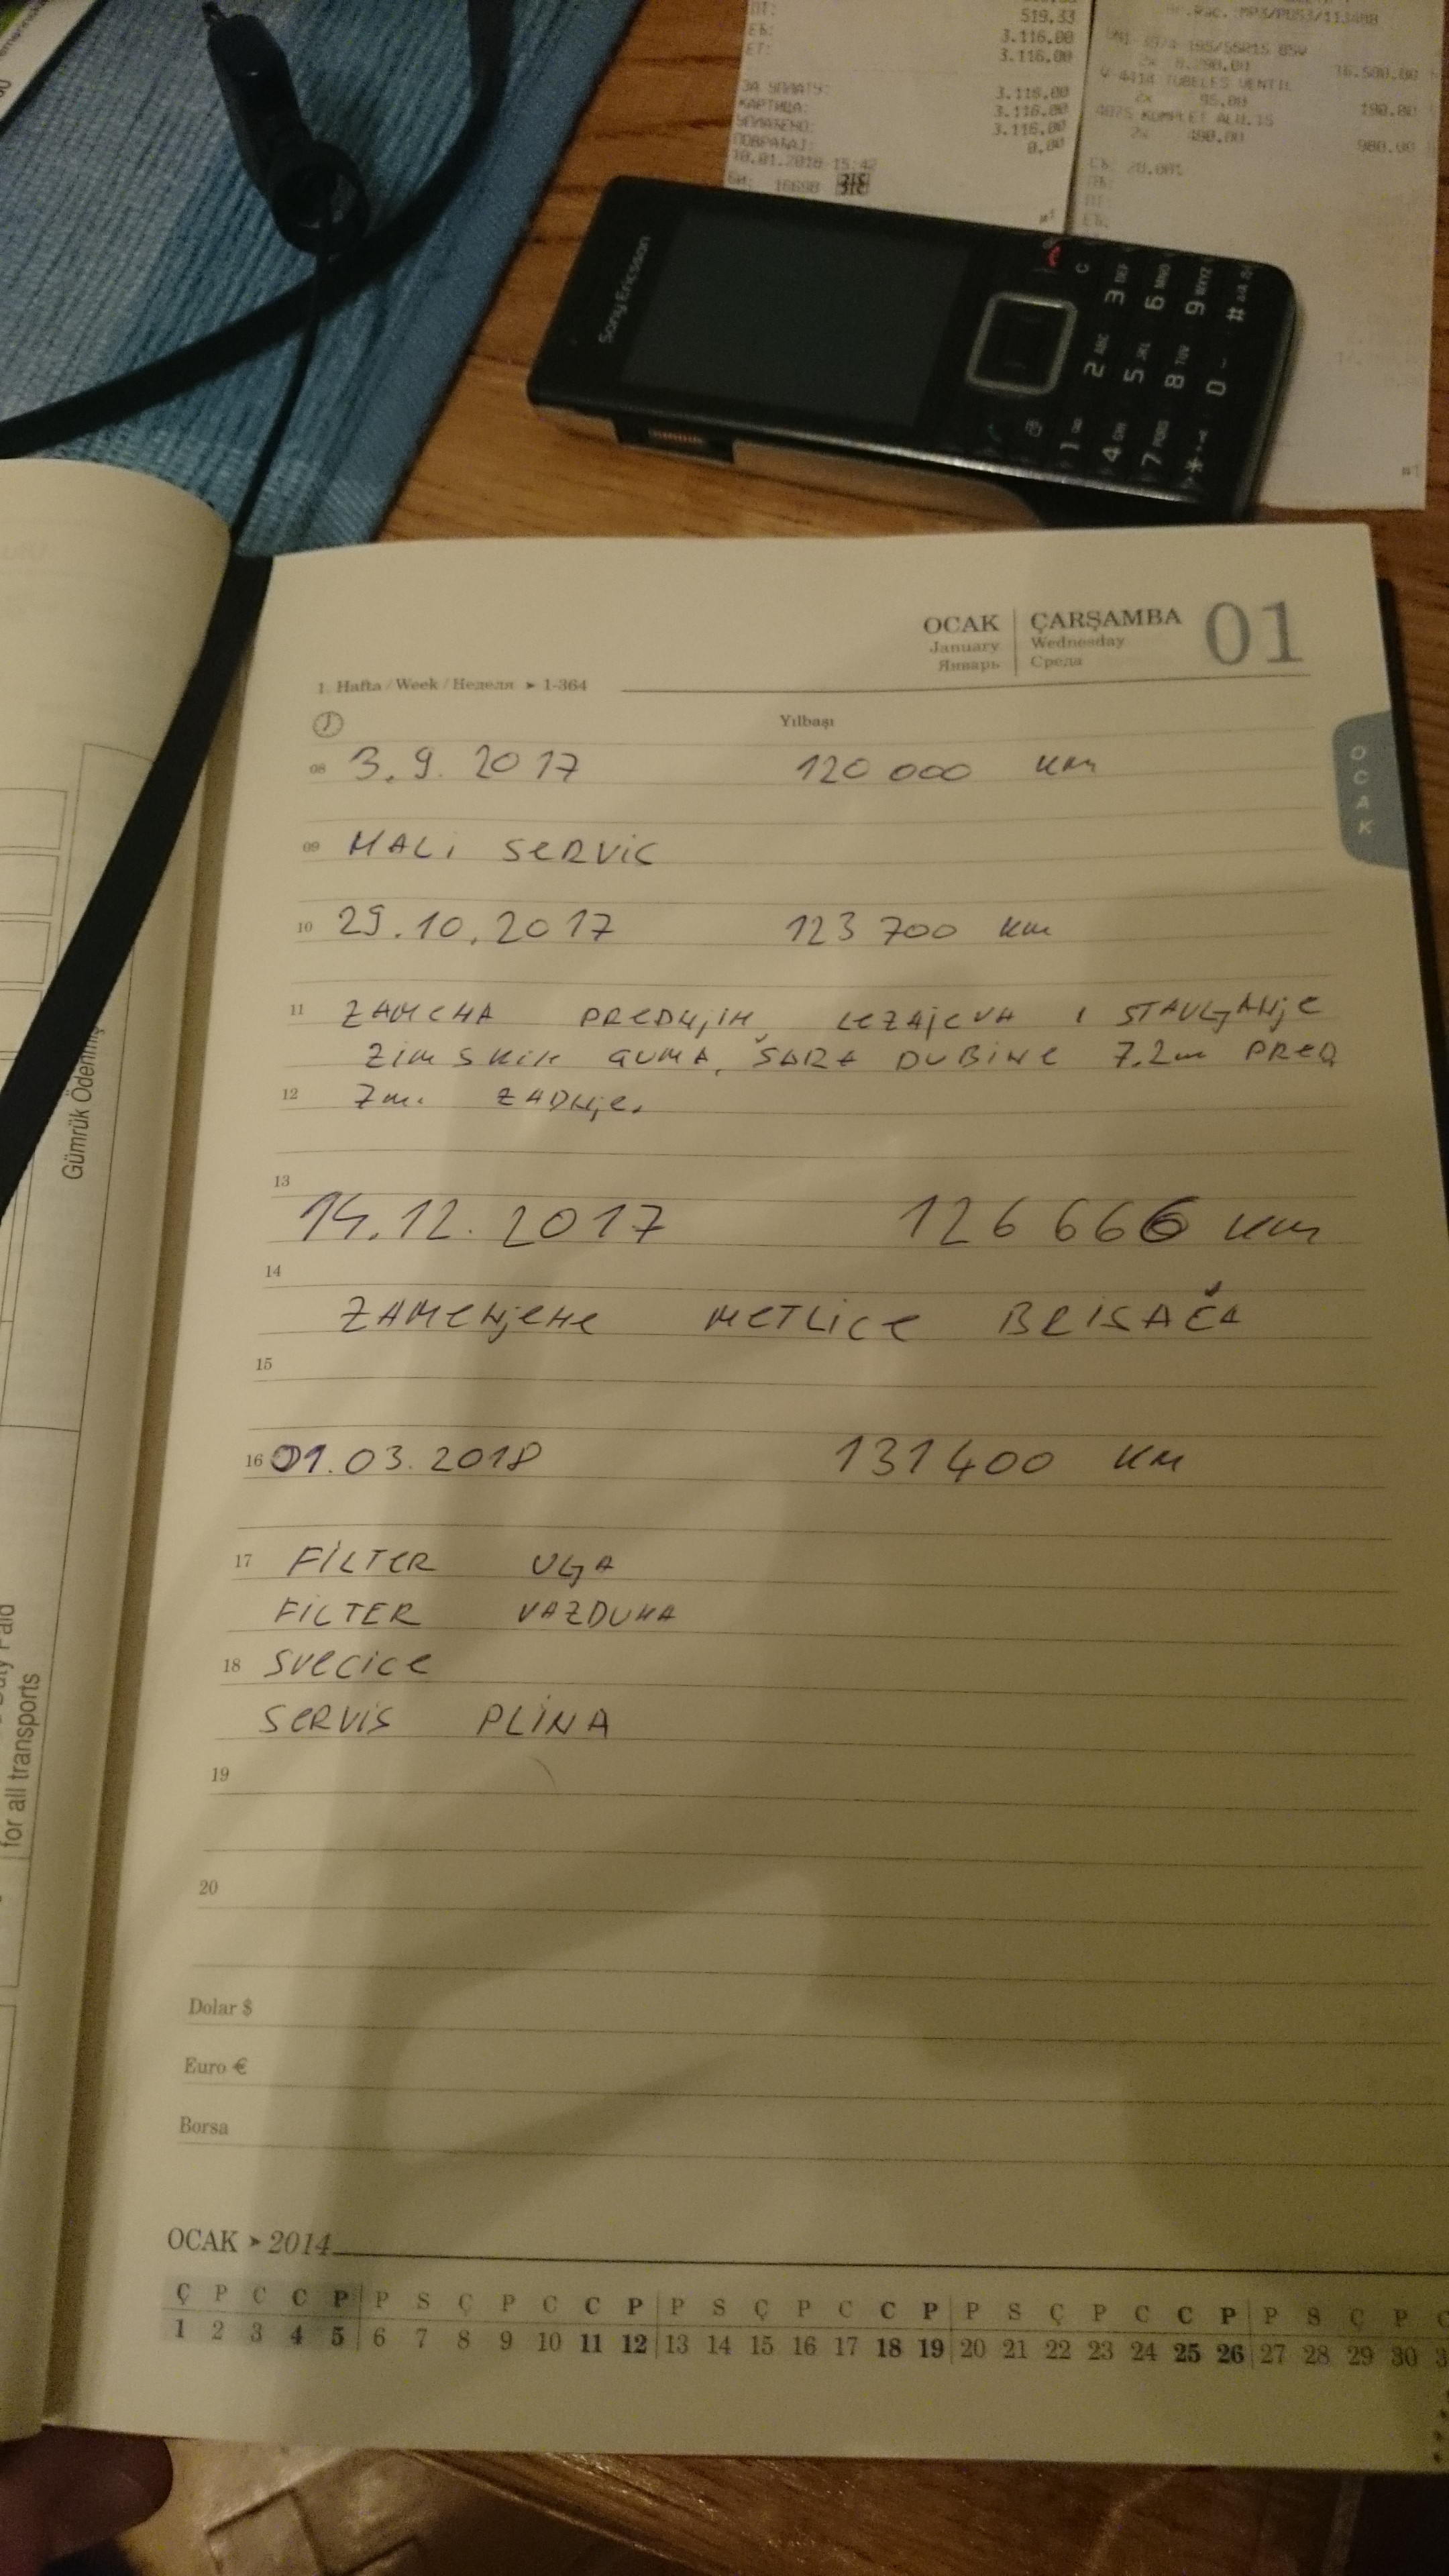 519,33
ЕБ: 3.116,00
ЕТ: 3.116,00
ЗА УПЛАТУ: 3.116,00
КАРТИЦА: 3.116,00
УПЛАЋЕНО: 3.116,00
ПОВРАЋАЈ: 0,00
10.01.2018 15:42
БИ: 16698
195/55R15 85V
2x 8.290,00 16.580,00
V-4414 TUBELES VENTIL
2x 95,00 190,00
4075 KOMPLET ALU.15
2x 490,00 980,00
Sony Ericsson
OCAK ÇARŞAMBA 01
January Wednesday
Январь Среда
1. Hafta / Week / Неделя ➤ 1-364
Yılbaşı
OCAK
08 3.9.2017 120 000 km
09 MALI SERVIS
10 29.10.2017 123 700 km
11 ZAMENA PREDNJIH LEZAJEVA I STAVLJANJE
ZIMSKIH GUMA, ŠARA DUBINE 7.2m PRED
12 7m. ZADNJE.
13
14.12.2017 126 666 km
14
ZAMENJENE METLICE BRISAČA
15
16 01.03.2018 131400 km
17 FILTER ULJA
FILTER VAZDUHA
18 SVECICE
SERVIS PLINA
19
20
Dolar $
Euro €
Borsa
OCAK ➤ 2014
Ç P C C P P S Ç P C C P P S Ç P C C P P S Ç P C C P P S Ç P C
1 2 3 4 5 6 7 8 9 10 11 12 13 14 15 16 17 18 19 20 21 22 23 24 25 26 27 28 29 30
Gümrük Ödenmiş
for all transports